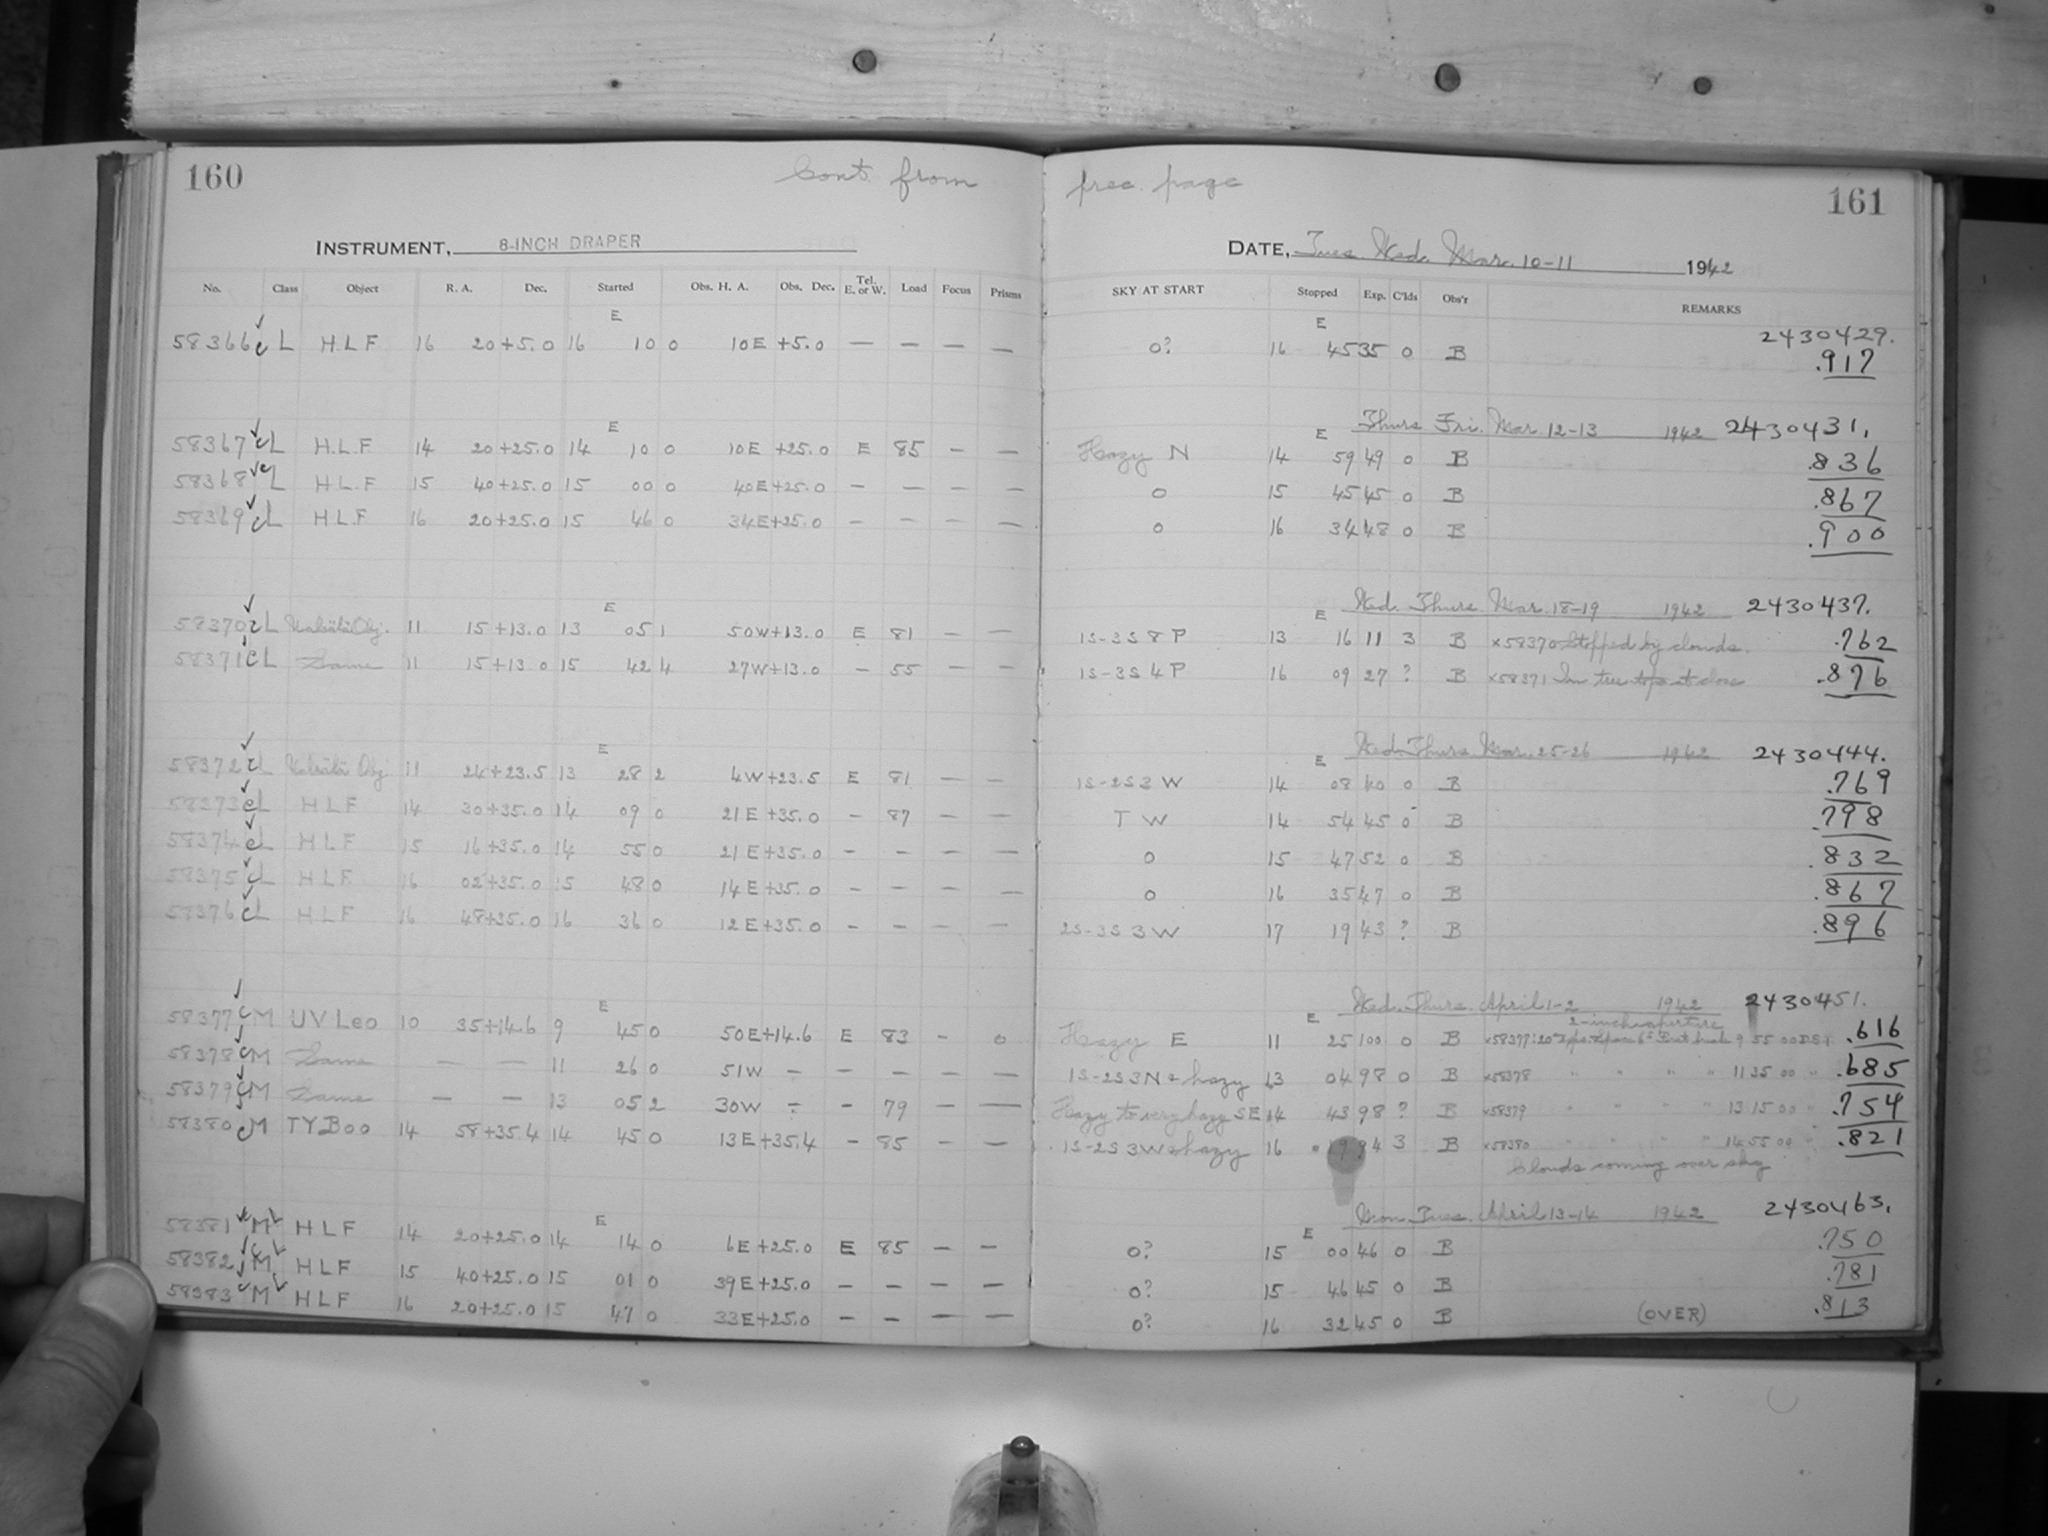 160 Cont. from prec. page 161
INSTRUMENT, 8-INCH DRAPER DATE, Tues. Wed. Mar. 10-11 1942
No. Class Object R. A. Dec. Started Obs. H. A. Obs. Dec. Tel. E. or W. Load Focus Prisms SKY AT START Stopped Exp. C'lds Obs'r REMARKS
E E 2430429.
58366 c L H.L.F 16 20 +5.0 16 10 0 10E +5.0 — — — — 0? 16 45 35 0 B .917
E E Thurs Fri. Mar. 12-13 1942 2430431.
58367 c L H.L.F 14 20 +25.0 14 10 0 10E +25.0 E 85 — — Hazy N 14 59 49 0 B .836
58368 c L H.L.F 15 40 +25.0 15 00 0 40E +25.0 — — — — 0 15 45 45 0 B .867
58369 c L H.L.F 16 20 +25.0 15 46 0 34E +25.0 — — — — 0 16 34 48 0 B .900
E E Wed. Thurs. Mar. 18-19 1942 2430437.
58370 c L Obj. 11 15 +13.0 13 05 1 50W +13.0 E 81 — — 1S-3S 8 P 13 16 11 3 B x58370 Stopped by clouds. .762
58371 c L Same 11 15 +13.0 15 42 4 27W +13.0 — 55 — — 1S-3S 4 P 16 09 27 ? B x58371 In tree tops at close .876
E E Wed. Thurs. Mar. 25-26 1942 2430444.
58372 c L Obj. 11 24 +23.5 13 28 2 4W +23.5 E 81 — — 1S-2S 3 W 14 08 40 0 B .769
58373 c L H L F 14 30 +35.0 14 09 0 21E +35.0 — 87 — — T W 14 54 45 0 B .798
58374 c L H L F 15 16 +35.0 14 55 0 21E +35.0 — — — — 0 15 47 52 0 B .832
58375 c L H L F 16 02 +35.0 15 48 0 14E +35.0 — — — — 0 16 35 47 0 B .867
58376 c L H L F 16 48 +35.0 16 36 0 12E +35.0 — — — — 2S-3S 3 W 17 19 43 ? B .896
E E Wed. Thurs. April 1-2 1942 2430451.
2-inch aperture
58377 c M UV Leo 10 35 +14.6 9 45 0 50E +14.6 E 83 — 0 Hazy E 11 25 100 0 B x58377: 9 55 00 DST .616
58378 c M Same — — 11 26 0 51W — — — — — 1S-2S 3N & hazy 13 04 98 0 B x58378 " " " " 11 35 00 " .685
58379 c M Same — — 13 05 2 30W — — 79 — — Hazy to very hazy SE 14 43 98 ? B x58379 " " " " 13 15 00 " .754
58380 c M TY Boo 14 58 +35.4 14 45 0 13E +35.4 — 85 — — 1S-2S 3W & hazy 16 3 B x58380 " " " " 14 55 00 " .821
Clouds coming over sky
E E Mon. Tues. April 13-14 1942 2430463.
58381 c M H L F 14 20 +25.0 14 14 0 6E +25.0 E 85 — — 0? 15 00 46 0 B .750
58382 c M H L F 15 40 +25.0 15 01 0 39E +25.0 — — — — 0? 15 46 45 0 B .781
58383 c M H L F 16 20 +25.0 15 47 0 33E +25.0 — — — — 0? 16 32 45 0 B (OVER) .813